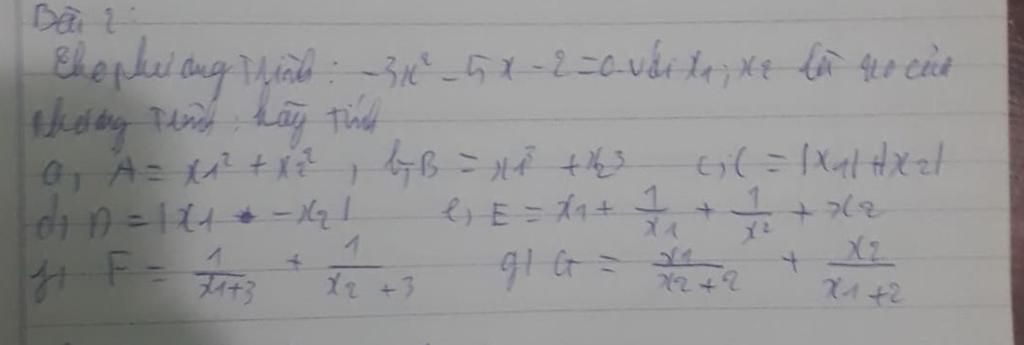 Bài 2:
Cho phương trình: -3x² - 5x - 2 = 0 với x1; x2 là no của
phương trình: hãy tính
a, A = x1² + x2², b, B = x1³ + x2³ c, C = |x1| + |x2|
d, D = |x1 - x2| e, E = x1 + 1/x1 + 1/x2 + x2
f, F = 1/x1+3 + 1/x2+3 g, G = x1/x2+2 + x2/x1+2